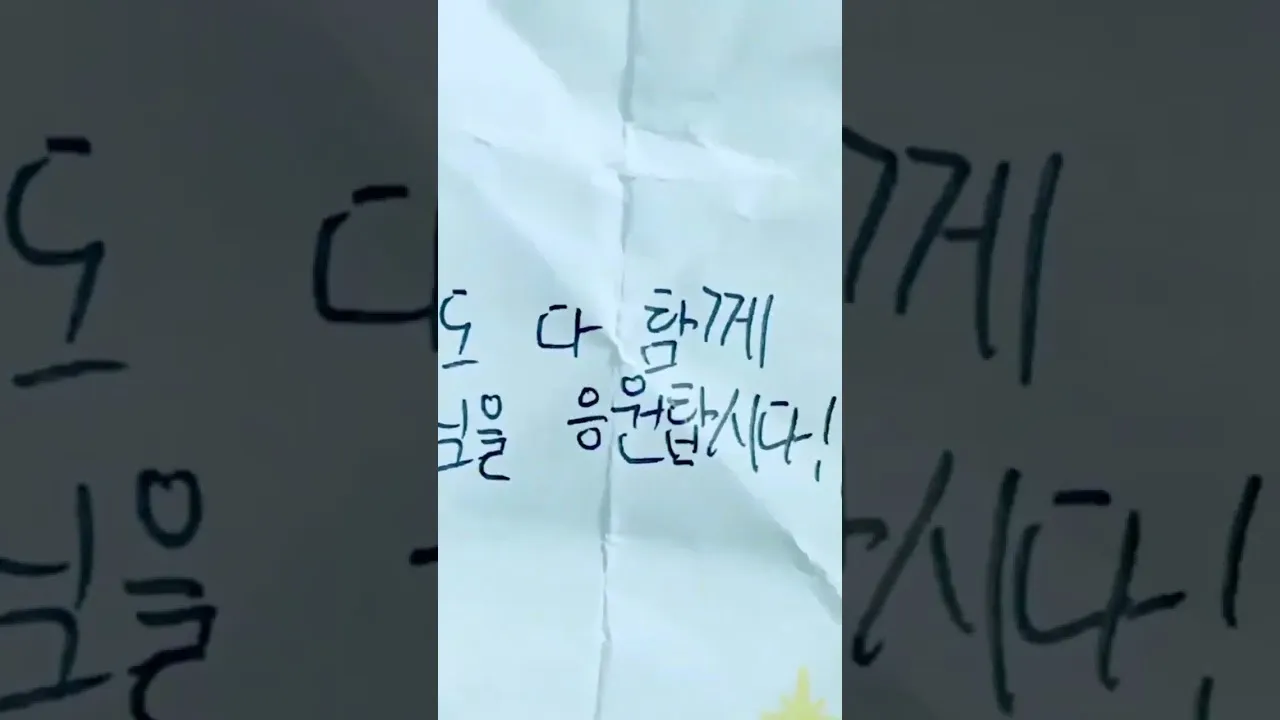 도 다 함께
님을 응원합시다!